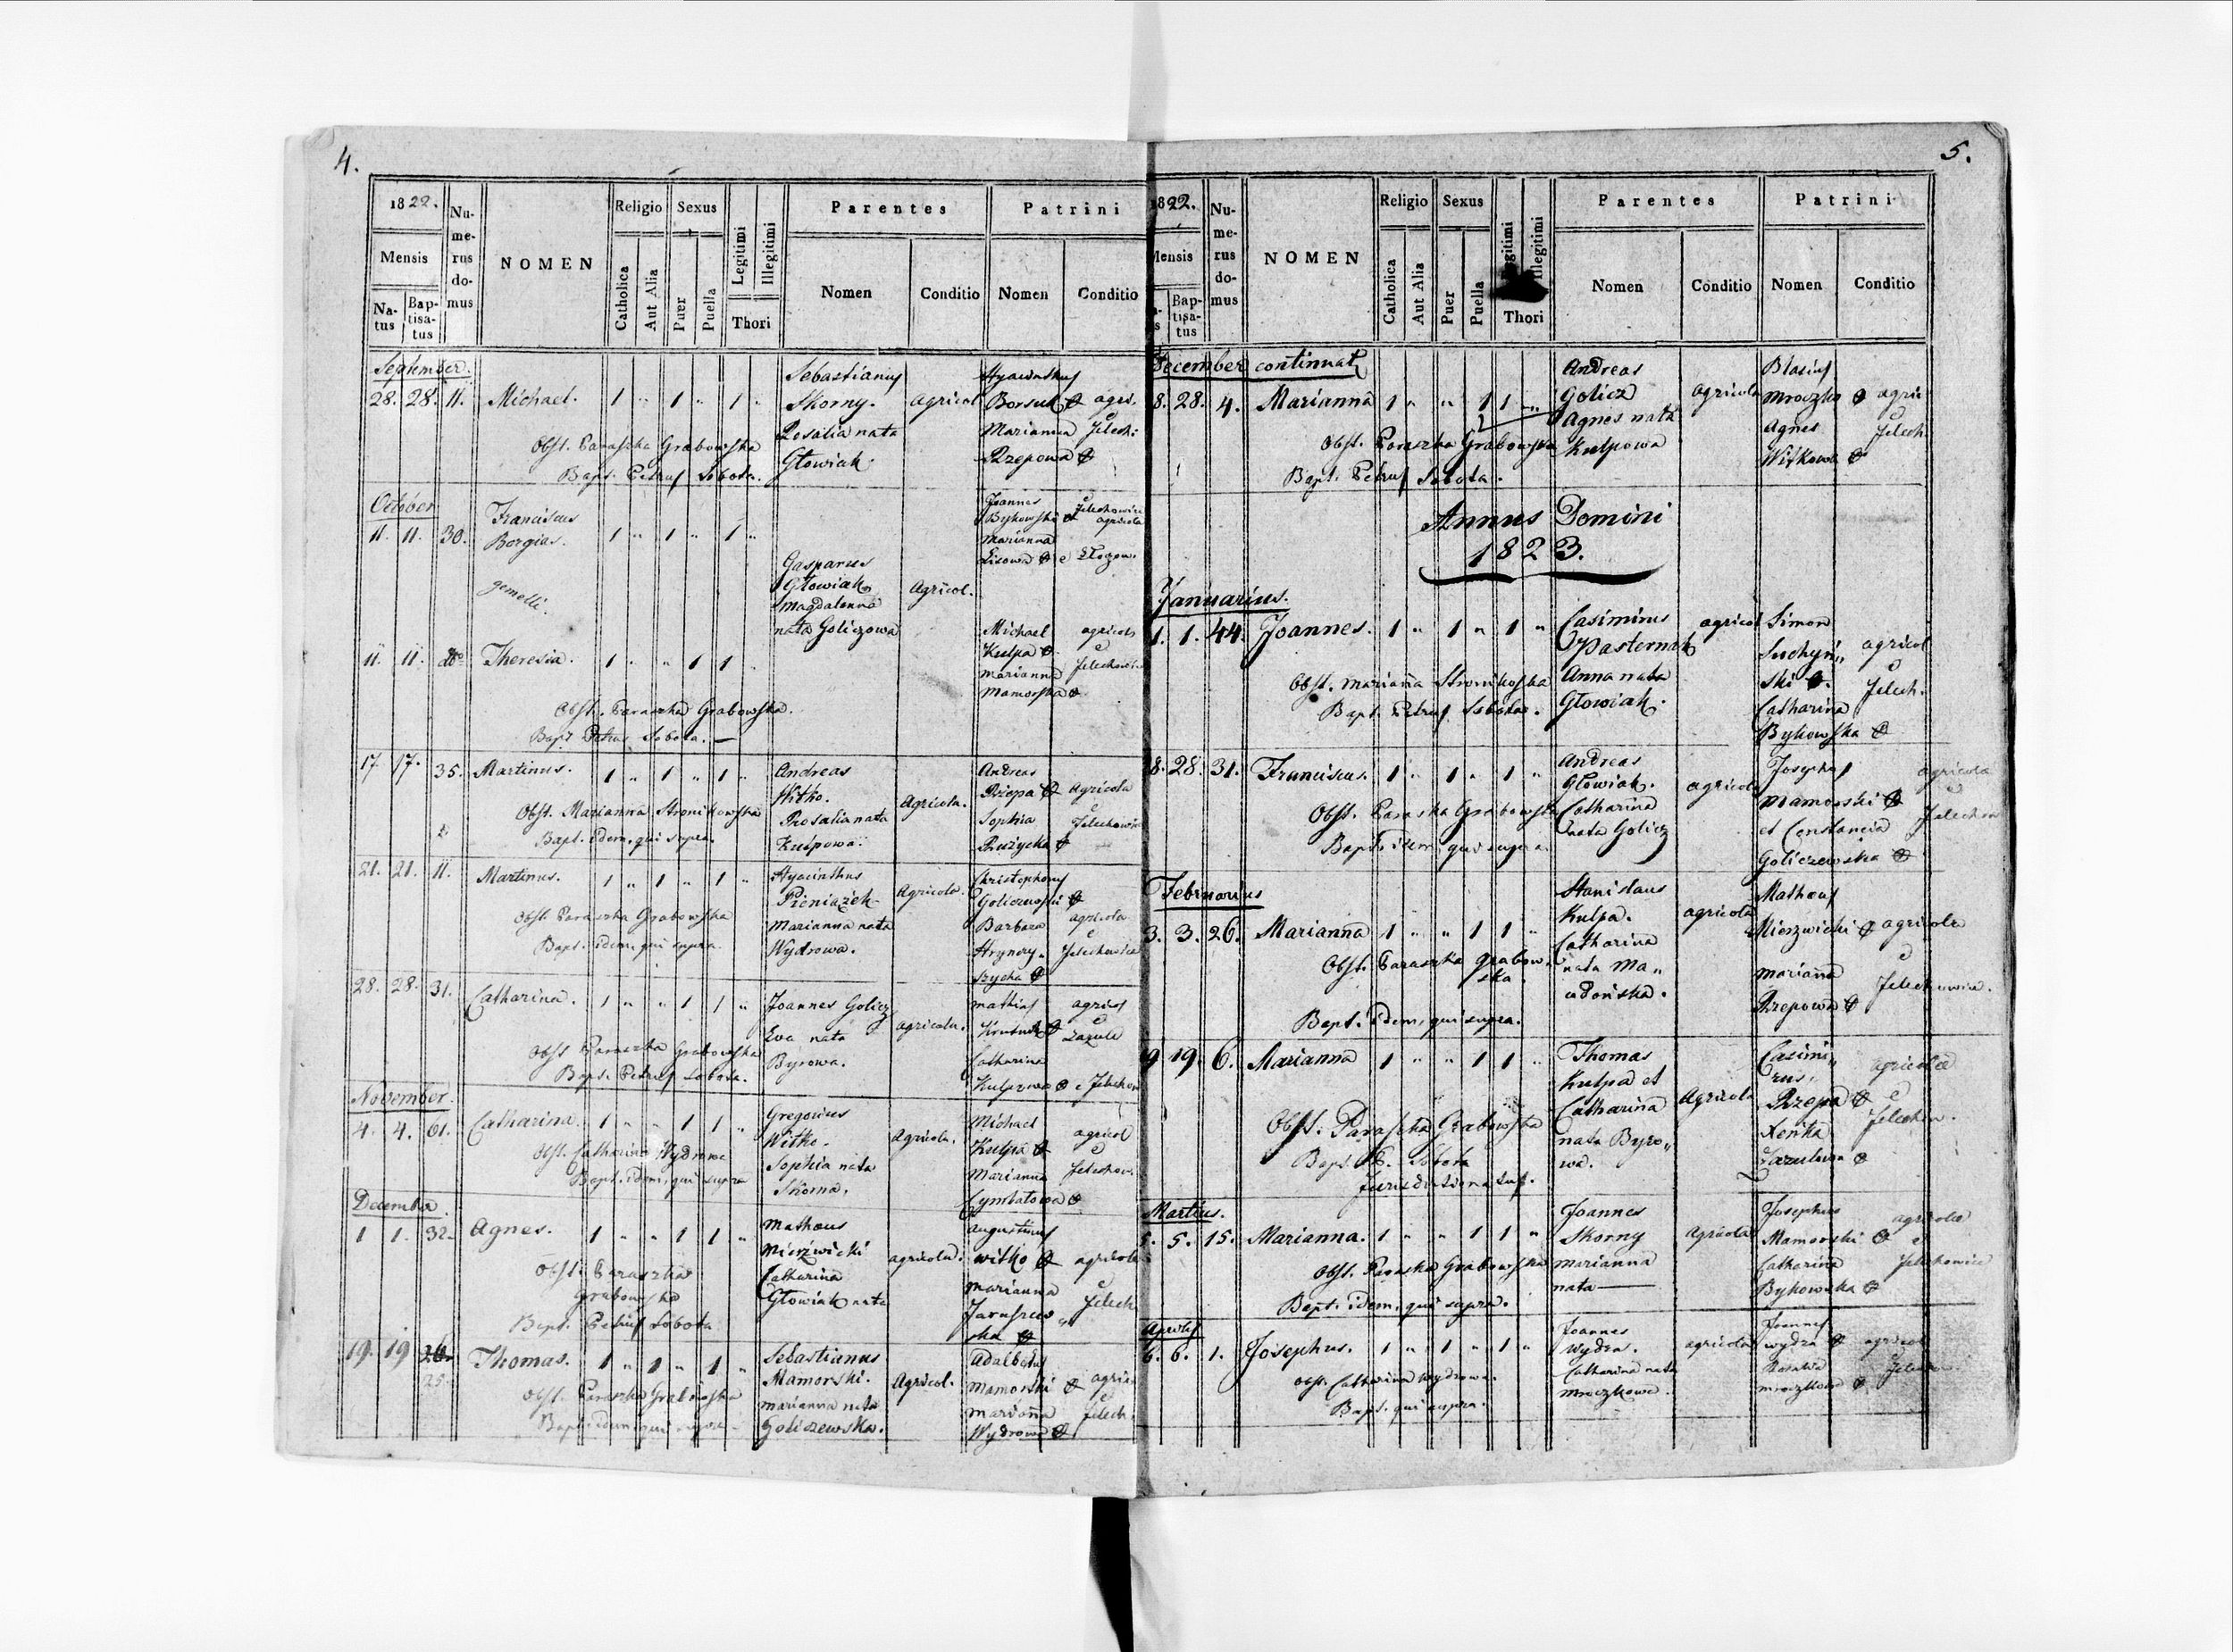 4.
1822.
Mensis
Na-
tus
Bap-
tisa-
tus
Nu-
me-
rus
do-
mus
NOMEN
Religio
Catholica
Aut Alia
Sexus
Puer
Puella
Legitimi
Illegitimi
Thori
Parentes
Nomen
Conditio
Patrini
Nomen
Conditio
September.
28. 28. 11. Michael. 1 " 1 " 1 "
Obst. Paraszka Grabowska
Bapt. Petrus Sobota.
Sebastianus
Skorny.
Rosalia nata
Głowiak.
agricol
Hyacinthus
Borsuk agri.
Marianna Jelech:
Rzepowa
October
11. 11. 30. Franciscus
Borgias. 1 " 1 " 1 "
gemelli.
Gasparus
Głowiak
Magdalenna
nata Goliczowa
Agricol.
Joannes
Bykowski
Marianna
Lisowa
Jelechowice
agricola
e Złoczow.
11. 11. dto Theresia. 1 " " 1 1 "
Obst. Paraszka Grabowska.
Bapt Petrus Sobota. —
Michael
Kulpa
Marianna
Mamorska
agricola
17. 17. 35. Martinus. 1 " 1 " 1 "
Obst. Marianna Stronikowska
Bapt. idem, qui supra.
Andreas
Witko.
Rosalia nata
Kulpowa.
Agricola.
Andreas
Rzepa
Sophia
Ruzycka
Agricola
e
Jelechowice
21. 21. 11. Martinus. 1 " 1 " 1 "
Obst Paraszka Grabowska
Bapt. idem, qui supra.
Hyacinthus
Pieniążek
Marianna nata
Wydrowa.
Agricola.
Christophorus
Goliczewski
Barbara
Hrynczy-
szycha
agricola
e
Jelechowice
28. 28. 31. Catharina. 1 " " 1 1 "
Obst Paraszka Grabowska
Bapt. Petrus Sobota.
Joannes Golicz
Ewa nata
Byrowa.
agricola.
Mathias
Catharina
Kulpowa
agricol
e
Zazule
e Jelechow
November.
4. 4. 61. Catharina. 1 " " 1 1 "
Obst. Catharina Wydrowa
Bapt. idem, qui supra
Gregorius
Witko.
Sophia nata
Skorna.
Agricola.
Michael
Kulpa
Marianna
Cymbalowa
agricol
e
Jelechow.
December.
1 1. 32. Agnes. 1 " " 1 1 "
Obst. Paraszka
Grabowska
Bapt. Petrus Sobota
Matheus
Mierzwicki
Catharina
Głowiak nata
agricola.
Augustinus
Witko
Marianna
ska
agricola
e
Jelech
19. 19 26.
25. Thomas. 1 " 1 " 1 "
Obst. Paraszka Grabowska
Bapt. idem, qui supra
Sebastianus
Mamorski.
Marianna nata
Goliszewska.
Agricol.
Adalbertus
Mamorski
Marianna
Wydrowa
agric.
e
Jelech.
5.
1822.
Mensis
Bap-
tisa-
tus
Nu-
me-
rus
do-
mus
NOMEN
Religio
Catholica
Aut Alia
Sexus
Puer
Puella
Illegitimi
Thori
Parentes
Nomen
Conditio
Patrini
Nomen
Conditio
December continuat
8. 28. 4. Marianna 1 " " 1 1 "
Obst. Paraszka Grabowska
Bapt. Petrus Sobota.
Andreas
Golicz
Agnes nata
Kulpowa
agricola
Blasius
Mroczko
Agnes
Witkowa
agric
e
Jelech.
Annus Domini
1823.
Januarius.
1. 1. 44. Joannes. 1 " 1 " 1 "
Obst. Marianna Stronikowska
Bapt. Petrus Sobota.
Casimirus
Pasternak
Anna nata
Głowiak.
agricol
Simon
Suchyń-
ski
Catharina
Bykowska
agricol
e
Jelech.
8. 28. 31. Franciscus. 1 " 1 " 1 "
Obst. Paraska Grabowska
Bapt. idem, qui supra
Andreas
Głowiak.
Catharina
nata Golicz
agricola
Josephus
Mamorski
et Constancia
Goliczewska
agricola
e
Jelechow
Februarius
3. 3. 26. Marianna 1 " " 1 1 "
Obst. Paraszka Grabow-
ska.
Bapt. idem, qui supra.
Stanislaus
Kulpa.
Catharina
nata Ma-
agricola
Matheus
Mierzwicki
Marianna
Rzepowa
agricola
e
Jelechowice.
9 19. 6. Marianna 1 " " 1 1 "
Obst. Paraska Grabowska
Bapt. P. Sobota
Thomas
Kulpa et
Catharina
nata Byro-
wa.
Agricola
Casimi-
rus.
Rzepa
Xenka
Zazulowa
agricolae
e
Jelechow.
Martius.
5. 5. 15. Marianna. 1 " " 1 1 "
Obst. Paraska Grabowska
Bapt. idem, qui supra.
Joannes
Skorny
Marianna
nata —
Agricola
Josephus
Mamorski
Catharina
Bykowska
agricolae
e
Jelechowice
Aprilis
6. 6. 1. Josephus. 1 " 1 " 1 "
Obst. Catharina Wydrowa.
Bapt. qui supra.
Joannes
Wydra.
Catharina nata
Mroczkowa.
agricola
Joannes
Wydra
Mroczkowa
agricol